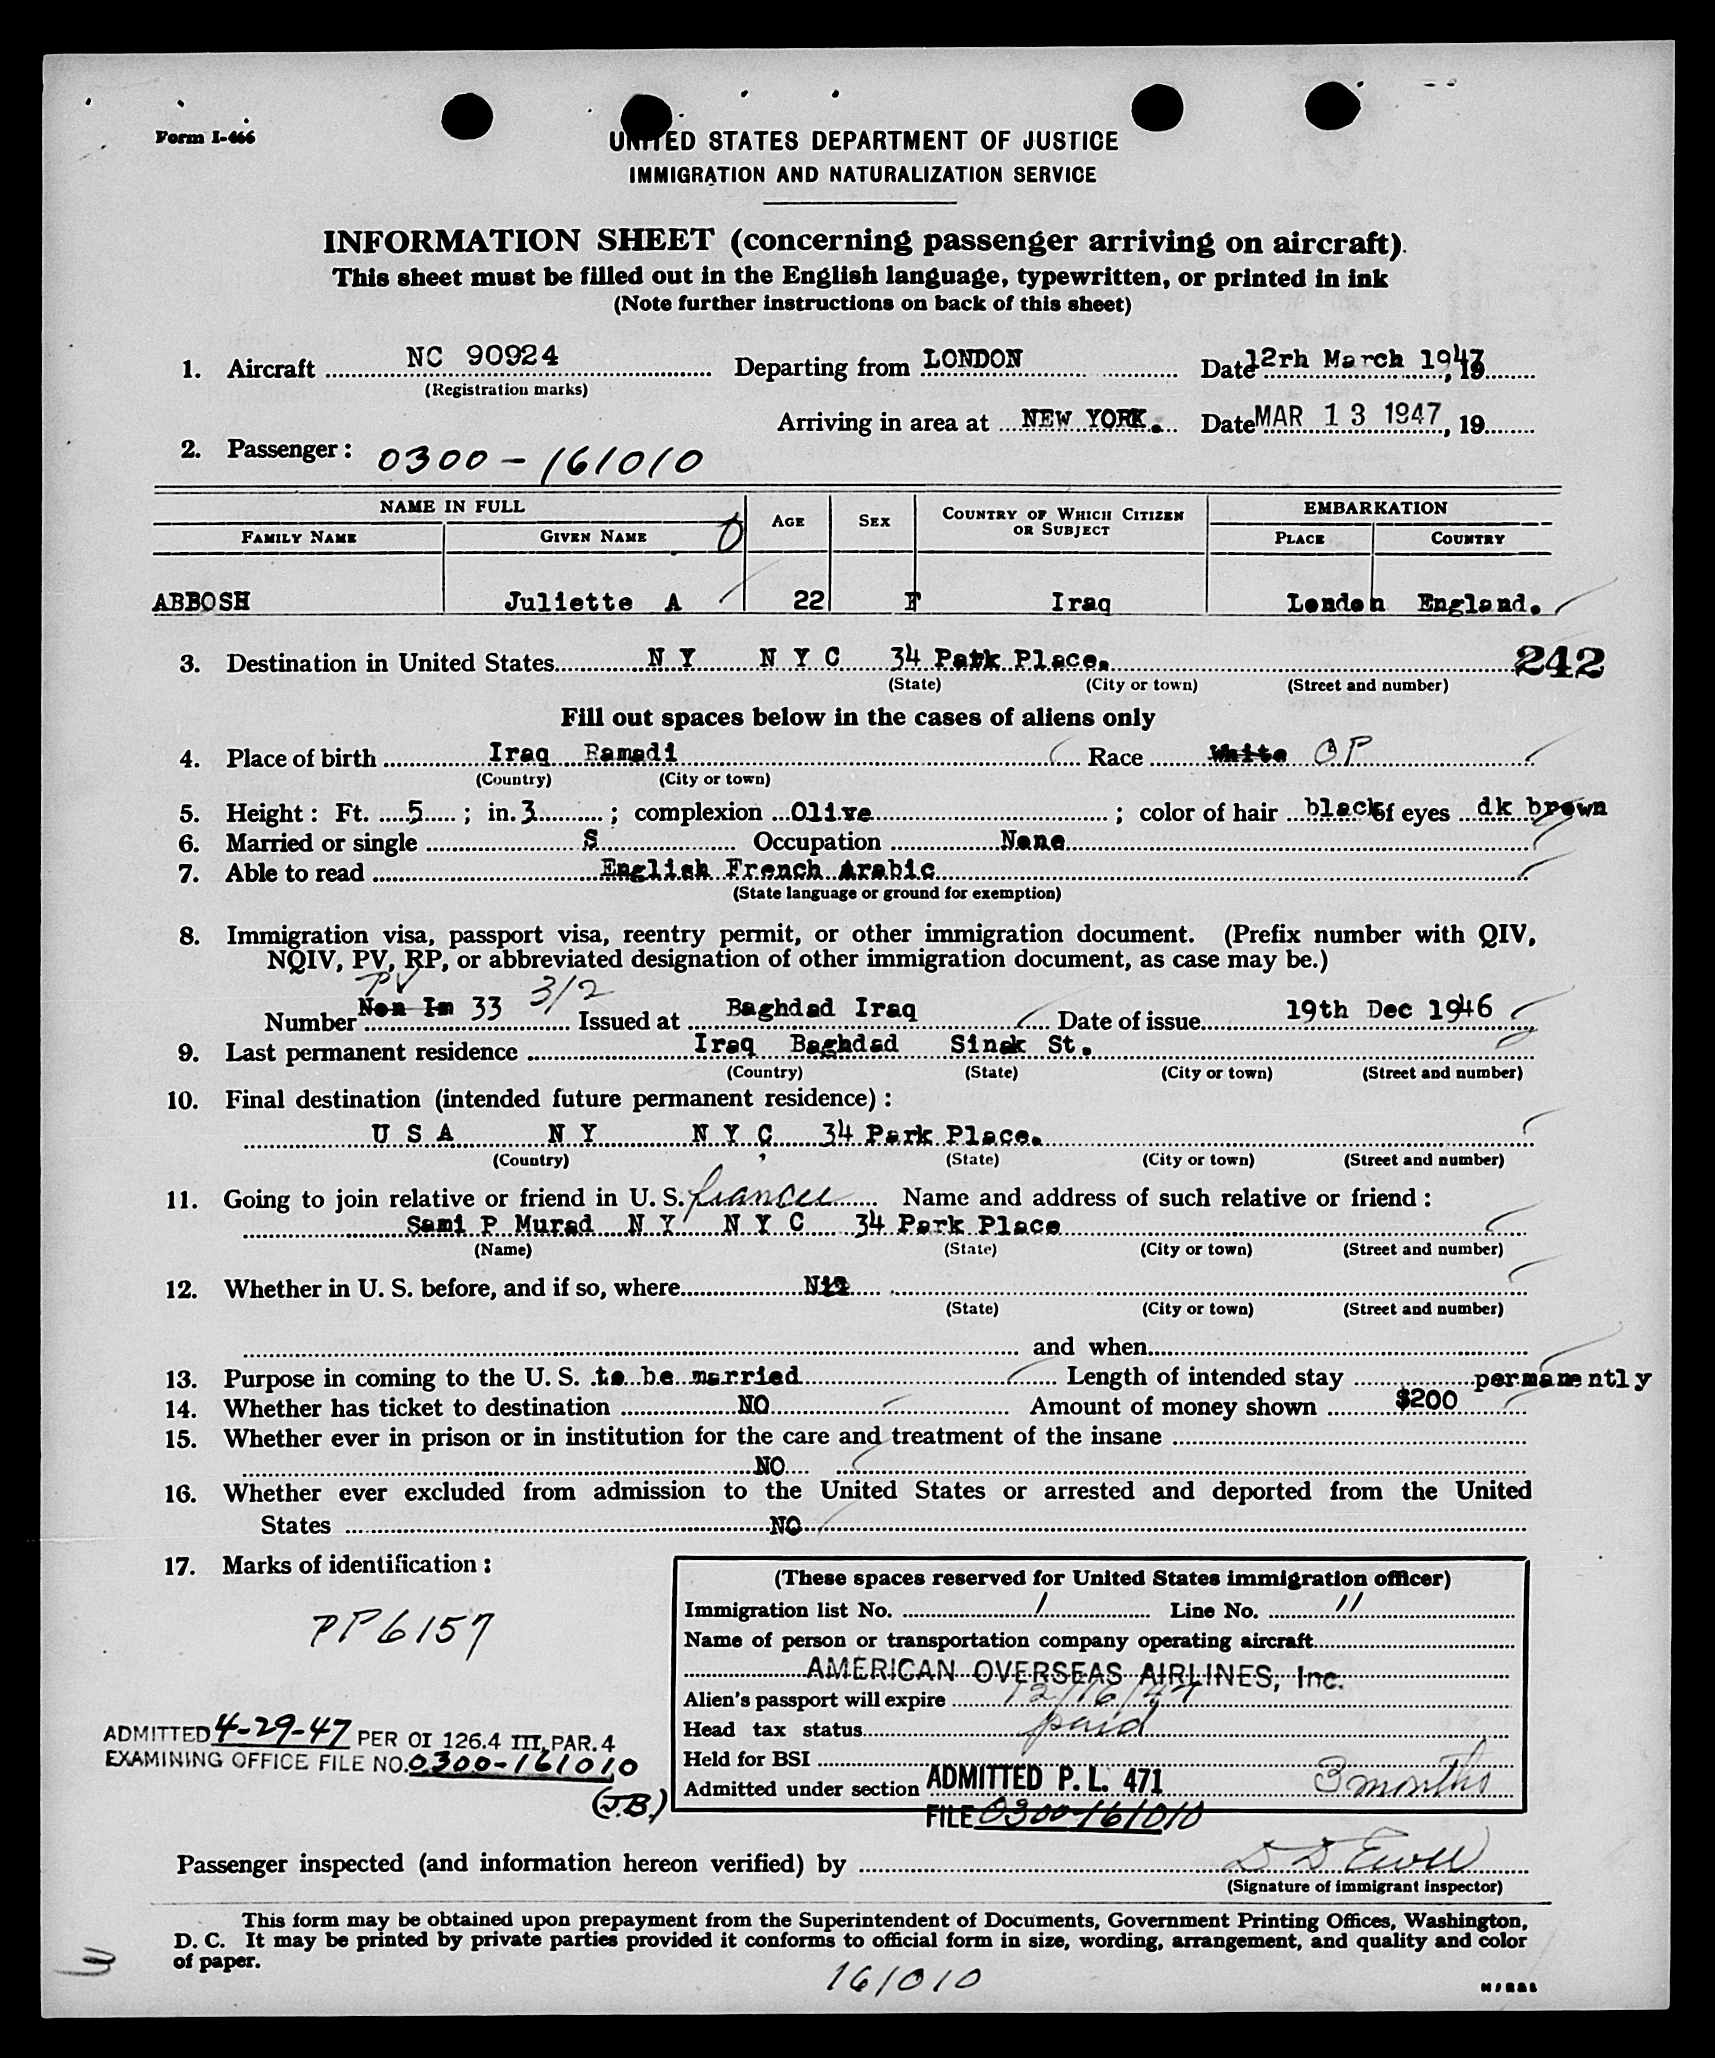 Form I-466
UNITED STATES DEPARTMENT OF JUSTICE
IMMIGRATION AND NATURALIZATION SERVICE
INFORMATION SHEET (concerning passenger arriving on aircraft).
This sheet must be filled out in the English language, typewritten, or printed in ink
(Note further instructions on back of this sheet)
1. Aircraft NC 90924 Departing from LONDON Date 12rh March 1947, 19
(Registration marks)
Arriving in area at NEW YORK. Date MAR 13 1947, 19
2. Passenger: 0300-161010
NAME IN FULL EMBARKATION
FAMILY NAME GIVEN NAME AGE SEX COUNTRY OF WHICH CITIZEN OR SUBJECT PLACE COUNTRY
ABBOSH Juliette A 22 F Iraq London England.
3. Destination in United States N Y N Y C 34 Park Place. 242
(State) (City or town) (Street and number)
Fill out spaces below in the cases of aliens only
4. Place of birth Iraq Ramadi Race White
(Country) (City or town)
5. Height: Ft. 5; in. 3; complexion Olive; color of hair black of eyes dk brown
6. Married or single S Occupation None
7. Able to read English French Arabic
(State language or ground for exemption)
8. Immigration visa, passport visa, reentry permit, or other immigration document. (Prefix number with QIV,
NQIV, PV, RP, or abbreviated designation of other immigration document, as case may be.)
PV 3/2
Number Non Im 33 Issued at Baghdad Iraq Date of issue 19th Dec 1946
9. Last permanent residence Iraq Baghdad Sinak St.
(Country) (State) (City or town) (Street and number)
10. Final destination (intended future permanent residence):
U S A N Y N Y C 34 Park Place.
(Country) (State) (City or town) (Street and number)
11. Going to join relative or friend in U. S. fiancee Name and address of such relative or friend:
Sami P Murad N Y N Y C 34 Park Place
(Name) (State) (City or town) (Street and number)
12. Whether in U. S. before, and if so, where Nil
(State) (City or town) (Street and number)
and when
13. Purpose in coming to the U. S. to be married Length of intended stay permanently
14. Whether has ticket to destination NO Amount of money shown $200
15. Whether ever in prison or in institution for the care and treatment of the insane
NO
16. Whether ever excluded from admission to the United States or arrested and deported from the United
States NO
17. Marks of identification:
PP6157
ADMITTED 4-29-47 PER OI 126.4 III, PAR. 4
EXAMINING OFFICE FILE NO. 0300-161010
(J.B.)
(These spaces reserved for United States immigration officer)
Immigration list No. 1 Line No. 11
Name of person or transportation company operating aircraft
AMERICAN OVERSEAS AIRLINES, Inc.
Alien's passport will expire 12/16/47
Head tax status paid
Held for BSI
Admitted under section ADMITTED P. L. 471 3 months
FILE 0300-161010
Passenger inspected (and information hereon verified) by
(Signature of immigrant inspector)
This form may be obtained upon prepayment from the Superintendent of Documents, Government Printing Offices, Washington,
D. C. It may be printed by private parties provided it conforms to official form in size, wording, arrangement, and quality and color
of paper.
161010